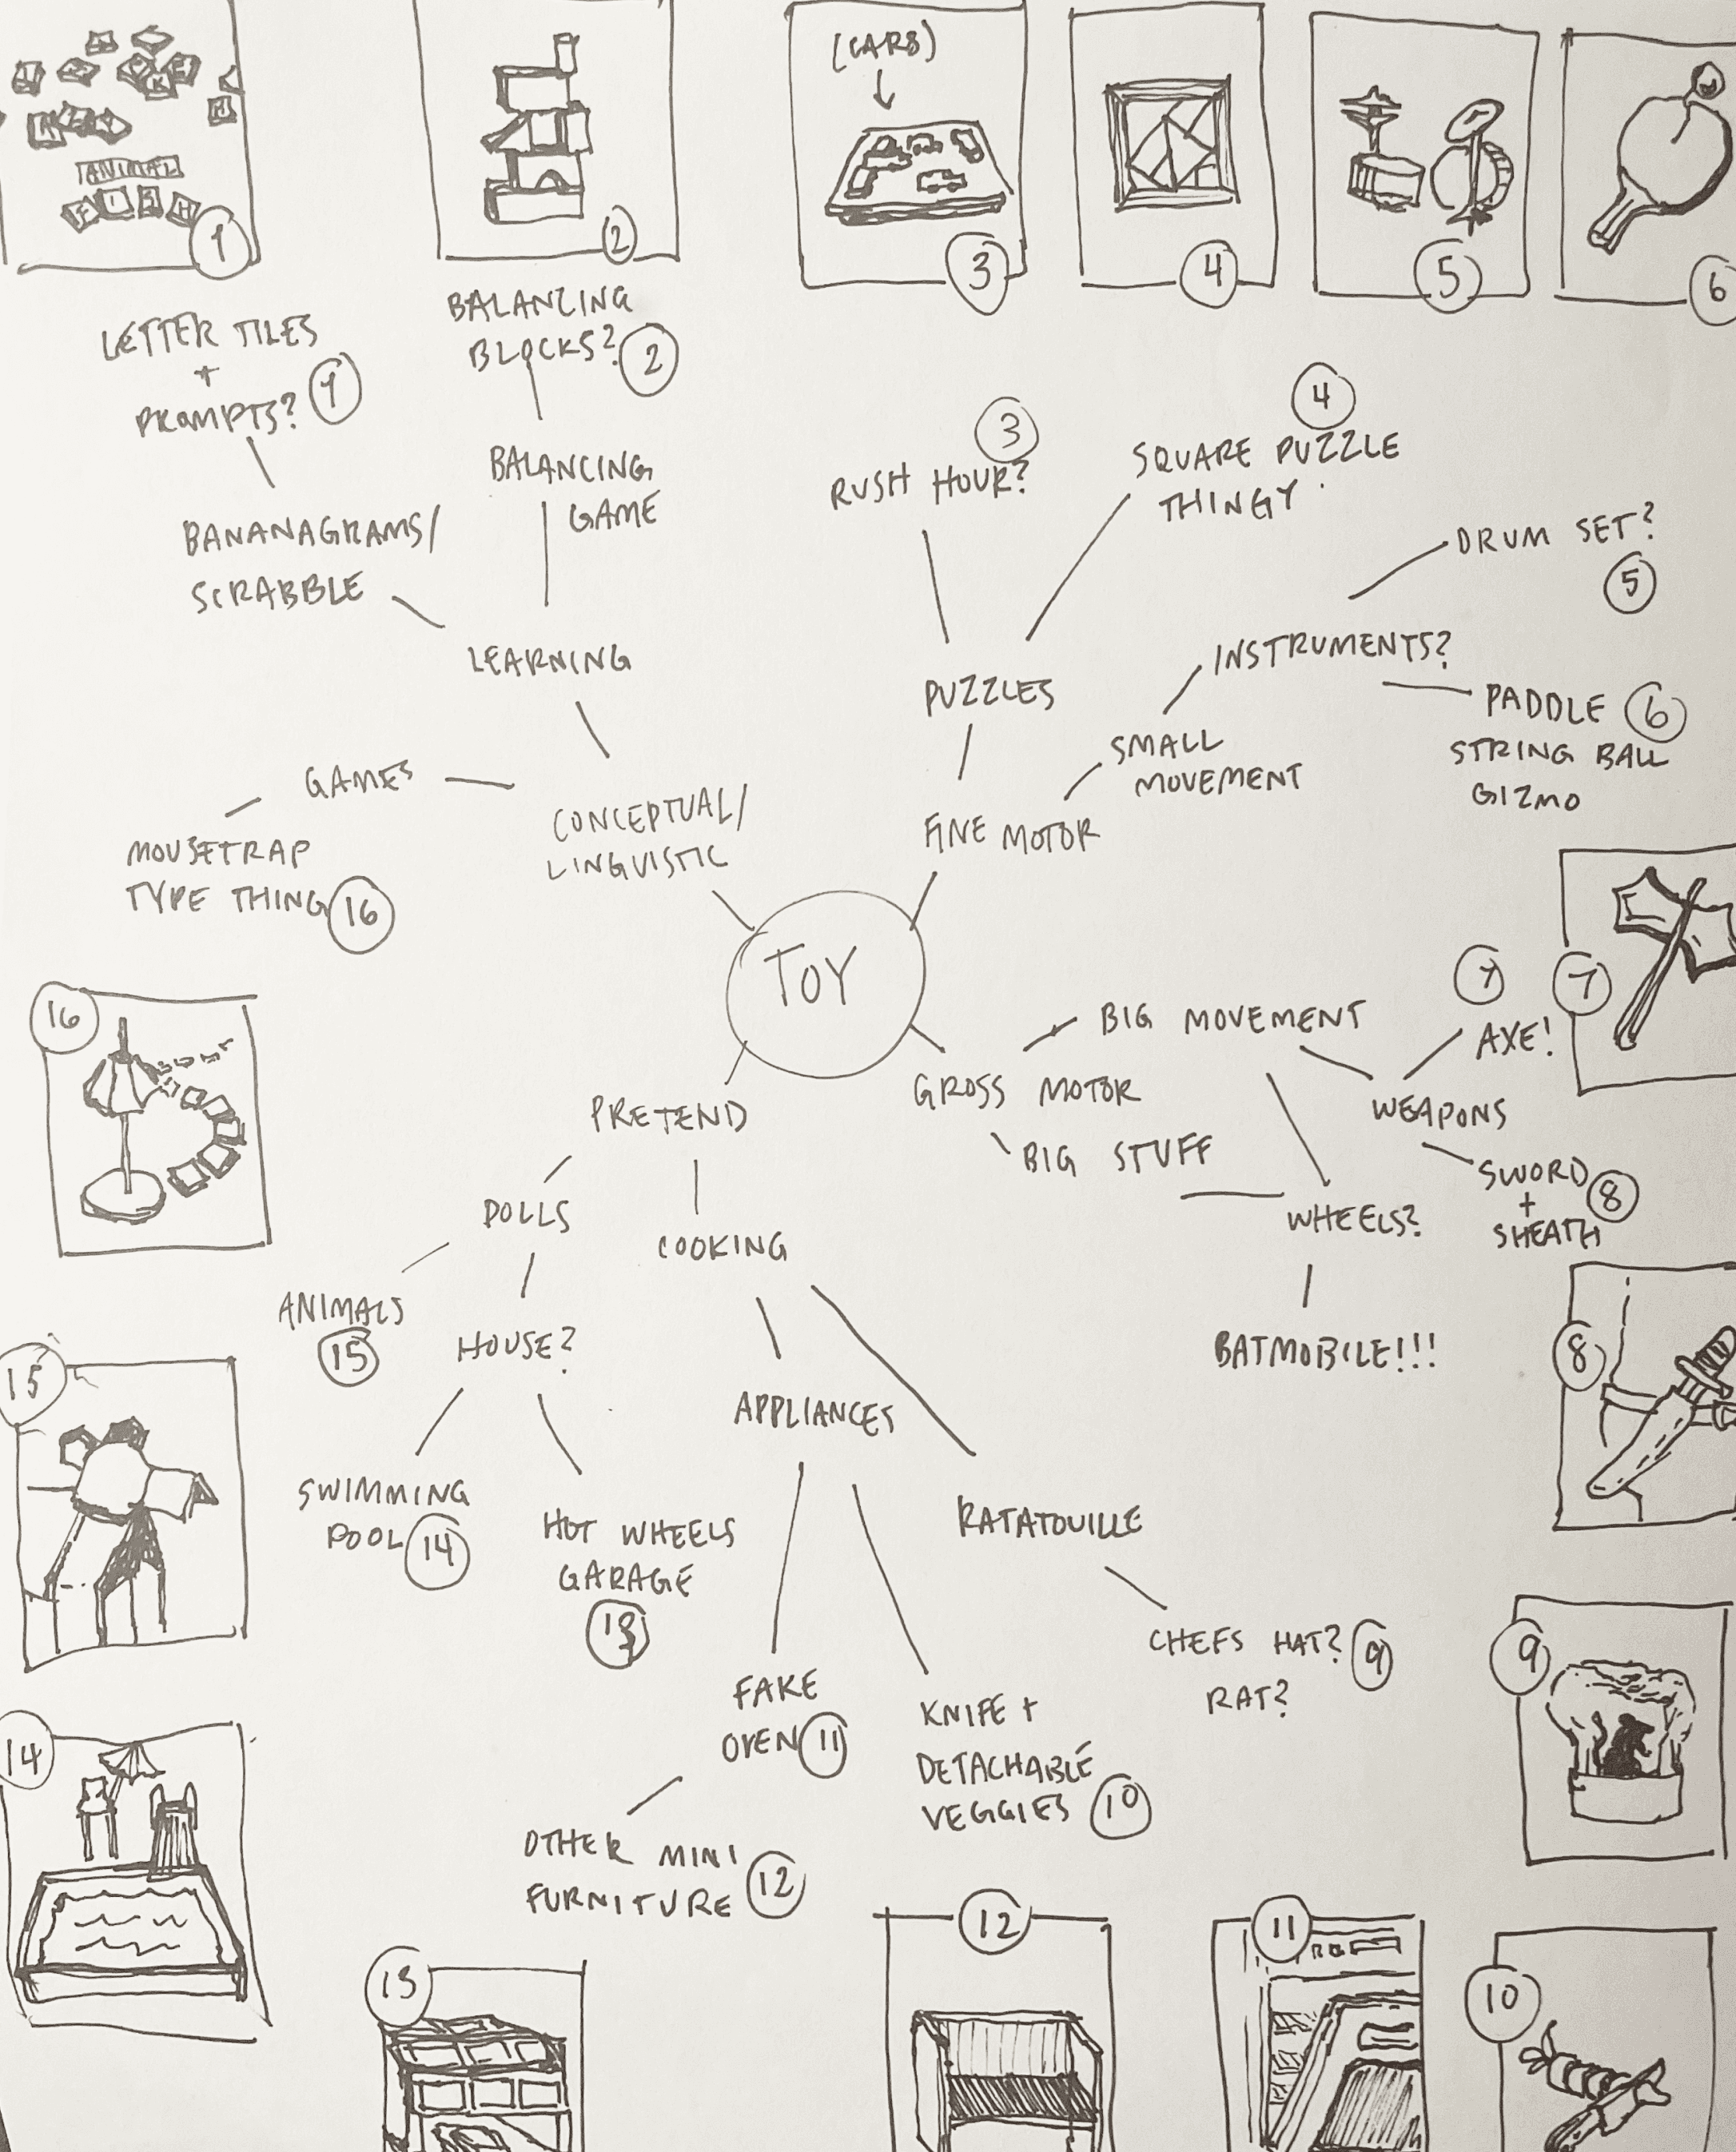 (CARS)
ANIMAL
FISH
1
2
3
4
5
6
LETTER TILES
+
PROMPTS? 1
BALANCING
BLOCKS? 2
BALANCING
GAME
BANANAGRAMS/
SCRABBLE
LEARNING
3
RUSH HOUR?
4
SQUARE PUZZLE
THINGY
DRUM SET?
5
INSTRUMENTS?
PUZZLES
PADDLE 6
STRING BALL
GIZMO
SMALL
MOVEMENT
GAMES
CONCEPTUAL/
LINGUISTIC
FINE MOTOR
MOUSETRAP
TYPE THING 16
TOY
7
7
AXE!
BIG MOVEMENT
GROSS MOTOR
WEAPONS
BIG STUFF
SWORD 8
+
SHEATH
WHEELS?
BATMOBILE!!!
8
16
PRETEND
DOLLS
COOKING
ANIMALS
15
HOUSE?
15
APPLIANCES
SWIMMING
POOL 14
HOT WHEELS
GARAGE
13
RATATOUILLE
CHEFS HAT? 9
RAT?
9
FAKE
OVEN 11
KNIFE +
DETACHABLE
VEGGIES 10
14
OTHER MINI
FURNITURE 12
13
12
11
10